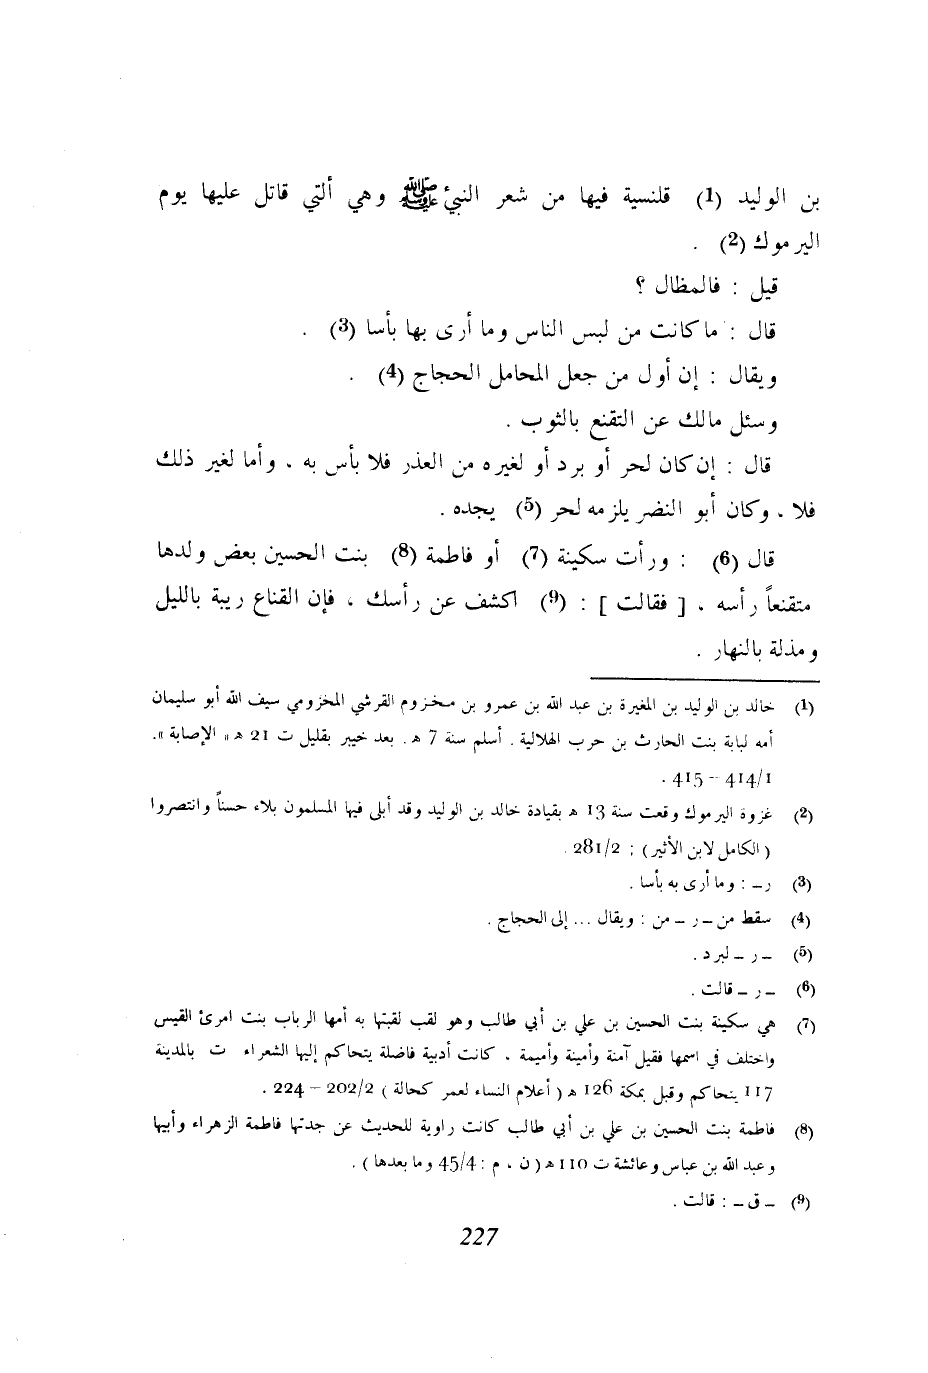 بن الوليد (1) قلنسية فيها من شعر النبيء ﷺ وهي ألتي قاتل عليها يوم
اليرموك (2) .
قيل : فالمظال ؟
قال : ما كانت من لبس الناس وما أرى بها بأسا (3) .
ويقال : إن أول من جعل المحامل الحجاج (4) .
وسئل مالك عن التقنع بالثوب .
قال : إن كان لحر أو برد أو لغيره من العذر فلا بأس به ، وأما لغير ذلك
فلا ، وكان أبو النضر يلزمه لحر (5) يجده .
قال (6) : ورأت سكينة (7) أو فاطمة (8) بنت الحسين بعض ولدها
متقنعاً رأسه ، [ فقالت ] : (9) اكشف عن رأسك ، فإن القناع ريبة بالليل
ومذلة بالنهار .
(1) خالد بن الوليد بن المغيرة بن عبد الله بن عمرو بن مخزوم القرشي المخزومي سيف الله أبو سليمان
أمه لبابة بنت الحارث بن حرب الهلالية . أسلم سنة 7 ه . بعد خيبر بقليل ت 21 ه « الإصابة ».
414/1 – 415 .
(2) غزوة اليرموك وقعت سنة 13 ه بقيادة خالد بن الوليد وقد أبلى فيها المسلمون بلاء حسناً وانتصروا
( الكامل لابن الأثير ) ; 281/2 .
(3) ر– : وما أرى به بأسا .
(4) سقط من – ر – من : ويقال ... إلى الحجاج .
(5) – ر – لبرد .
(6) – ر – قالت .
(7) هي سكينة بنت الحسين بن علي بن أبي طالب وهو لقب لقبتها به أمها الرباب بنت امرئ القيس
واختلف في اسمها فقيل آمنة وأمينة وأميمة . كانت أدبية فاضلة يتحاكم إليها الشعراء ت بالمدينة
117 يتحاكم وقبل بمكة 126 ه ( أعلام النساء لعمر كحالة ) 202/2 – 224 .
(8) فاطمة بنت الحسين بن علي بن أبي طالب كانت راوية للحديث عن جدتها فاطمة الزهراء وأبيها
وعبد الله بن عباس وعائشة ت 110 ه ( ن ، م : 45/4 وما بعدها ) .
(9) – ق – : قالت .
227